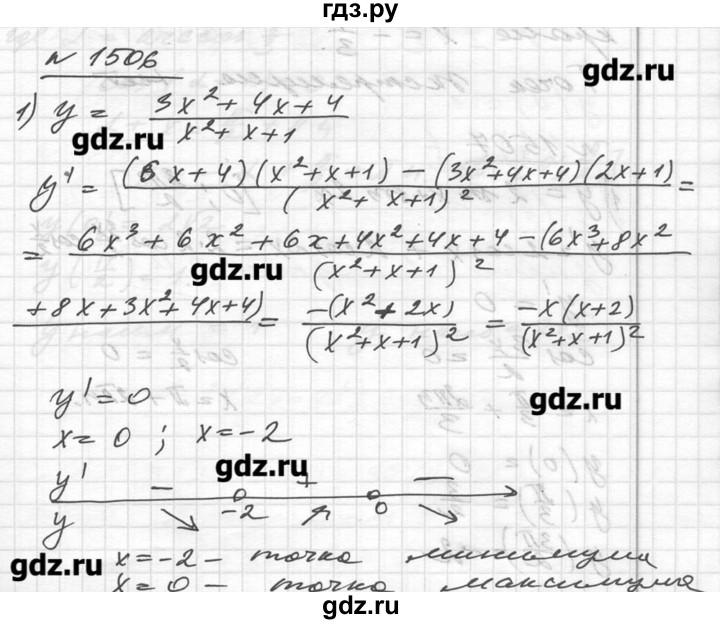 гдз.ру
№ 1506
gdz.ru
1) y = (3x² + 4x + 4)/(x² + x + 1)
gdz.ru
y' = ((6x + 4)(x² + x + 1) − (3x² + 4x + 4)(2x + 1))/(x² + x + 1)² =
= (6x³ + 6x² + 6x + 4x² + 4x + 4 − (6x³ + 8x²)/(x² + x + 1)²
gdz.ru
(+ 8x + 3x² + 4x + 4)) = (−(x² + 2x))/(x² + x + 1)² = (−x(x + 2))/(x² + x + 1)²
y' = 0
gdz.ru
x = 0 ; x = −2
gdz.ru
y' − + −
−2 0
y ↘ ↗ ↘
gdz.ru
x = −2 − точка минимума
x = 0 − точка максимума
gdz.ru